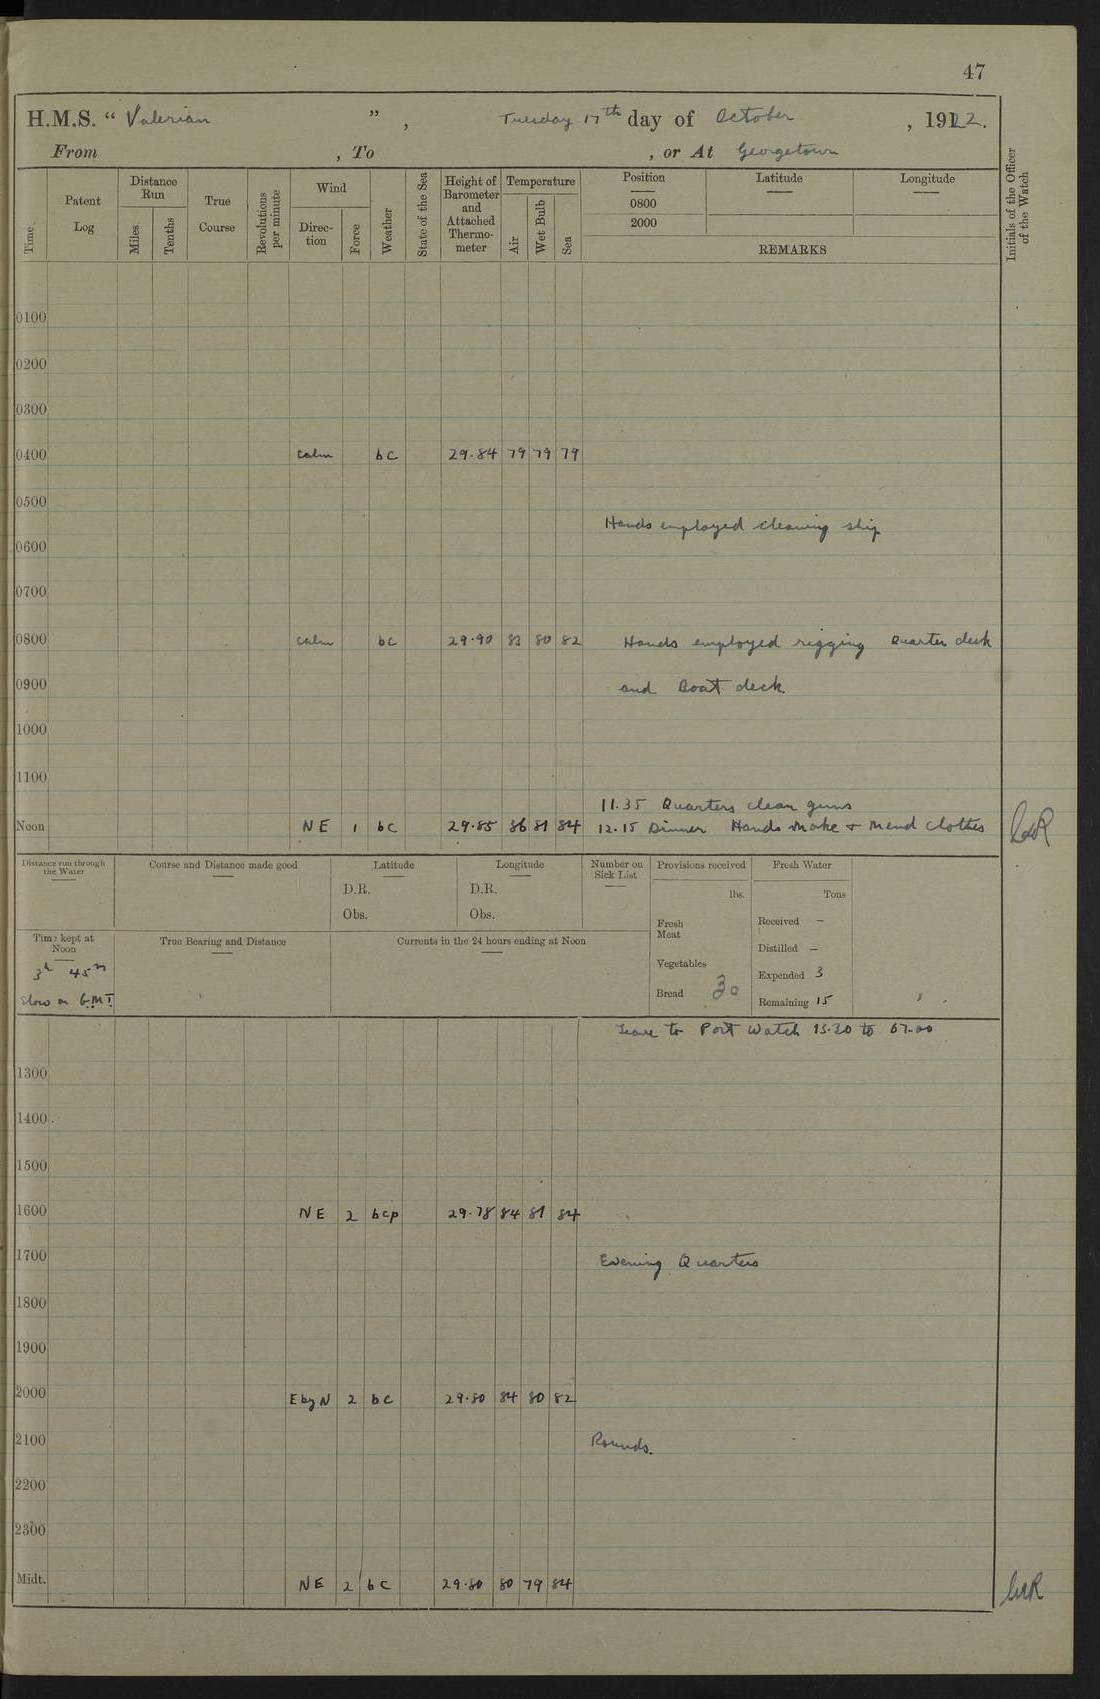 47
H.M.S. “ Valerian ” , Tuesday 17th day of October , 1922.
From , To , or At Georgetown
Time.
Patent Log
Distance Run
Miles
Tenths
True Course
Revolutions per minute
Wind
Direc-tion
Force
Weather
State of the Sea
Height of Barometer and Attached Thermo-meter
Temperature
Air
Wet Bulb
Sea
Position
0800
2000
Latitude
Longitude
REMARKS
Initials of the Officer of the Watch
0100
0200
0300
0400 calm bc 29.84 79 79 79
0500
Hands employed cleaning ship
0600
0700
0800 calm bc 29.90 83 80 82 Hands employed rigging Quarter deck
0900 and Boat deck
1000
1100
11.35 Quarters clean guns
Noon NE 1 bc 29.85 86 81 84 12.15 Dinner Hands make & mend clothes
Distance run through the Water
Course and Distance made good
Latitude
D.R.
Obs.
Longitude
D.R.
Obs.
Number on Sick List
Provisions received
lbs.
Fresh Meat
Vegetables
Bread 30
Fresh Water
Tons
Received —
Distilled —
Expended 3
Remaining 15
Time kept at Noon
3h 45m
slow on G.M.T.
True Bearing and Distance
Currents in the 24 hours ending at Noon
Leave to Port Watch 13.30 to 07.00
1300
1400
1500
1600 NE 2 bcp 29.78 84 81 84
1700 Evening Quarters
1800
1900
2000 E by N 2 bc 29.80 84 80 82
2100 Rounds.
2200
2300
Midt. NE 2 bc 29.80 80 79 84